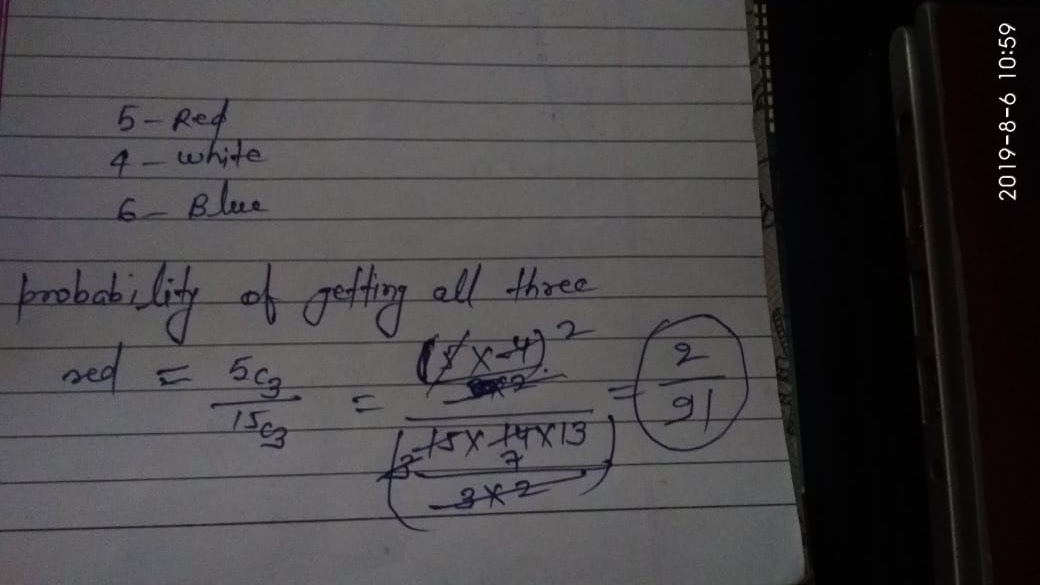 5 - Red
4 - white
6 - Blue
probability of getting all three
red = 5C3 / 15C3 = (5 x 4) 2 / (15 x 14 x 13 / 3 x 2) 3 7 = 2 / 91
2019-8-6 10:59